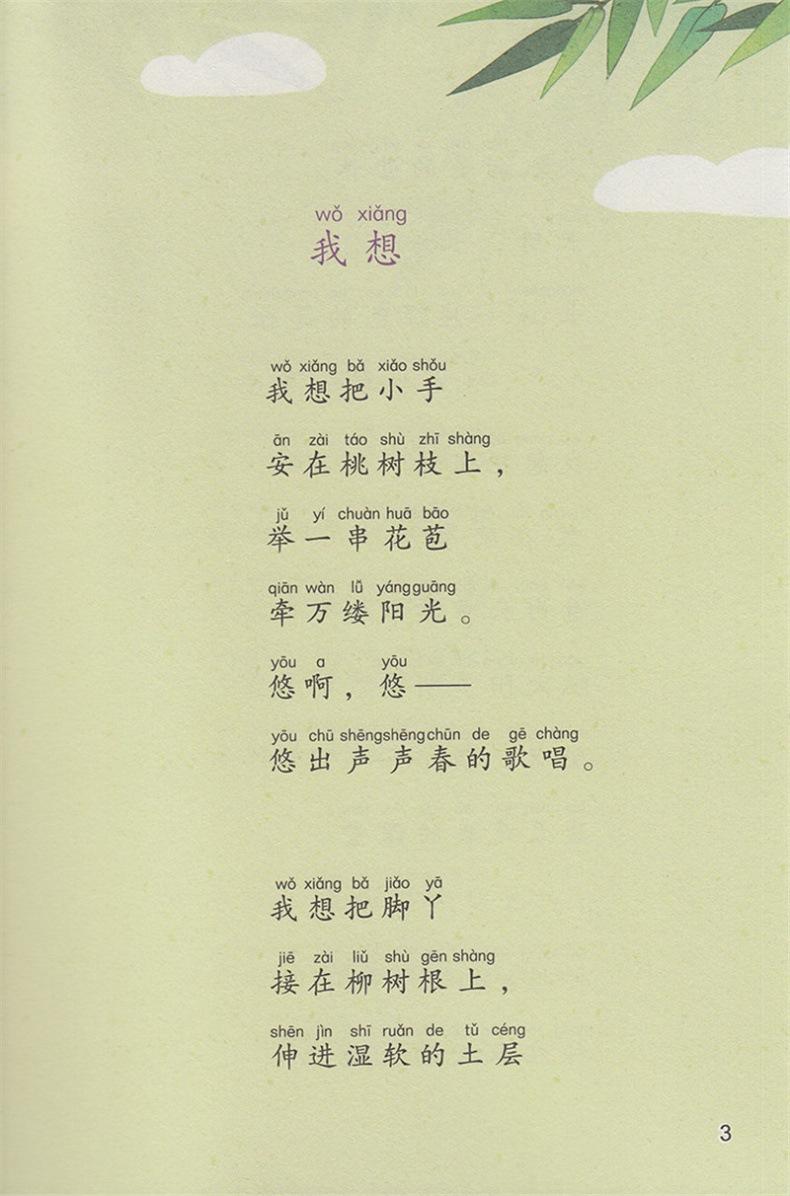 wǒ xiǎng
我想
wǒ xiǎng bǎ xiǎo shǒu
我想把小手
ān zài táo shù zhī shàng
安在桃树枝上，
jǔ yí chuàn huā bāo
举一串花苞
qiān wàn lǚ yáng guāng
牵万缕阳光。
yōu a yōu
悠啊，悠——
yōu chū shēng shēng chūn de gē chàng
悠出声声春的歌唱。
wǒ xiǎng bǎ jiǎo yā
我想把脚丫
jiē zài liǔ shù gēn shàng
接在柳树根上，
shēn jìn shī ruǎn de tǔ céng
伸进湿软的土层
3